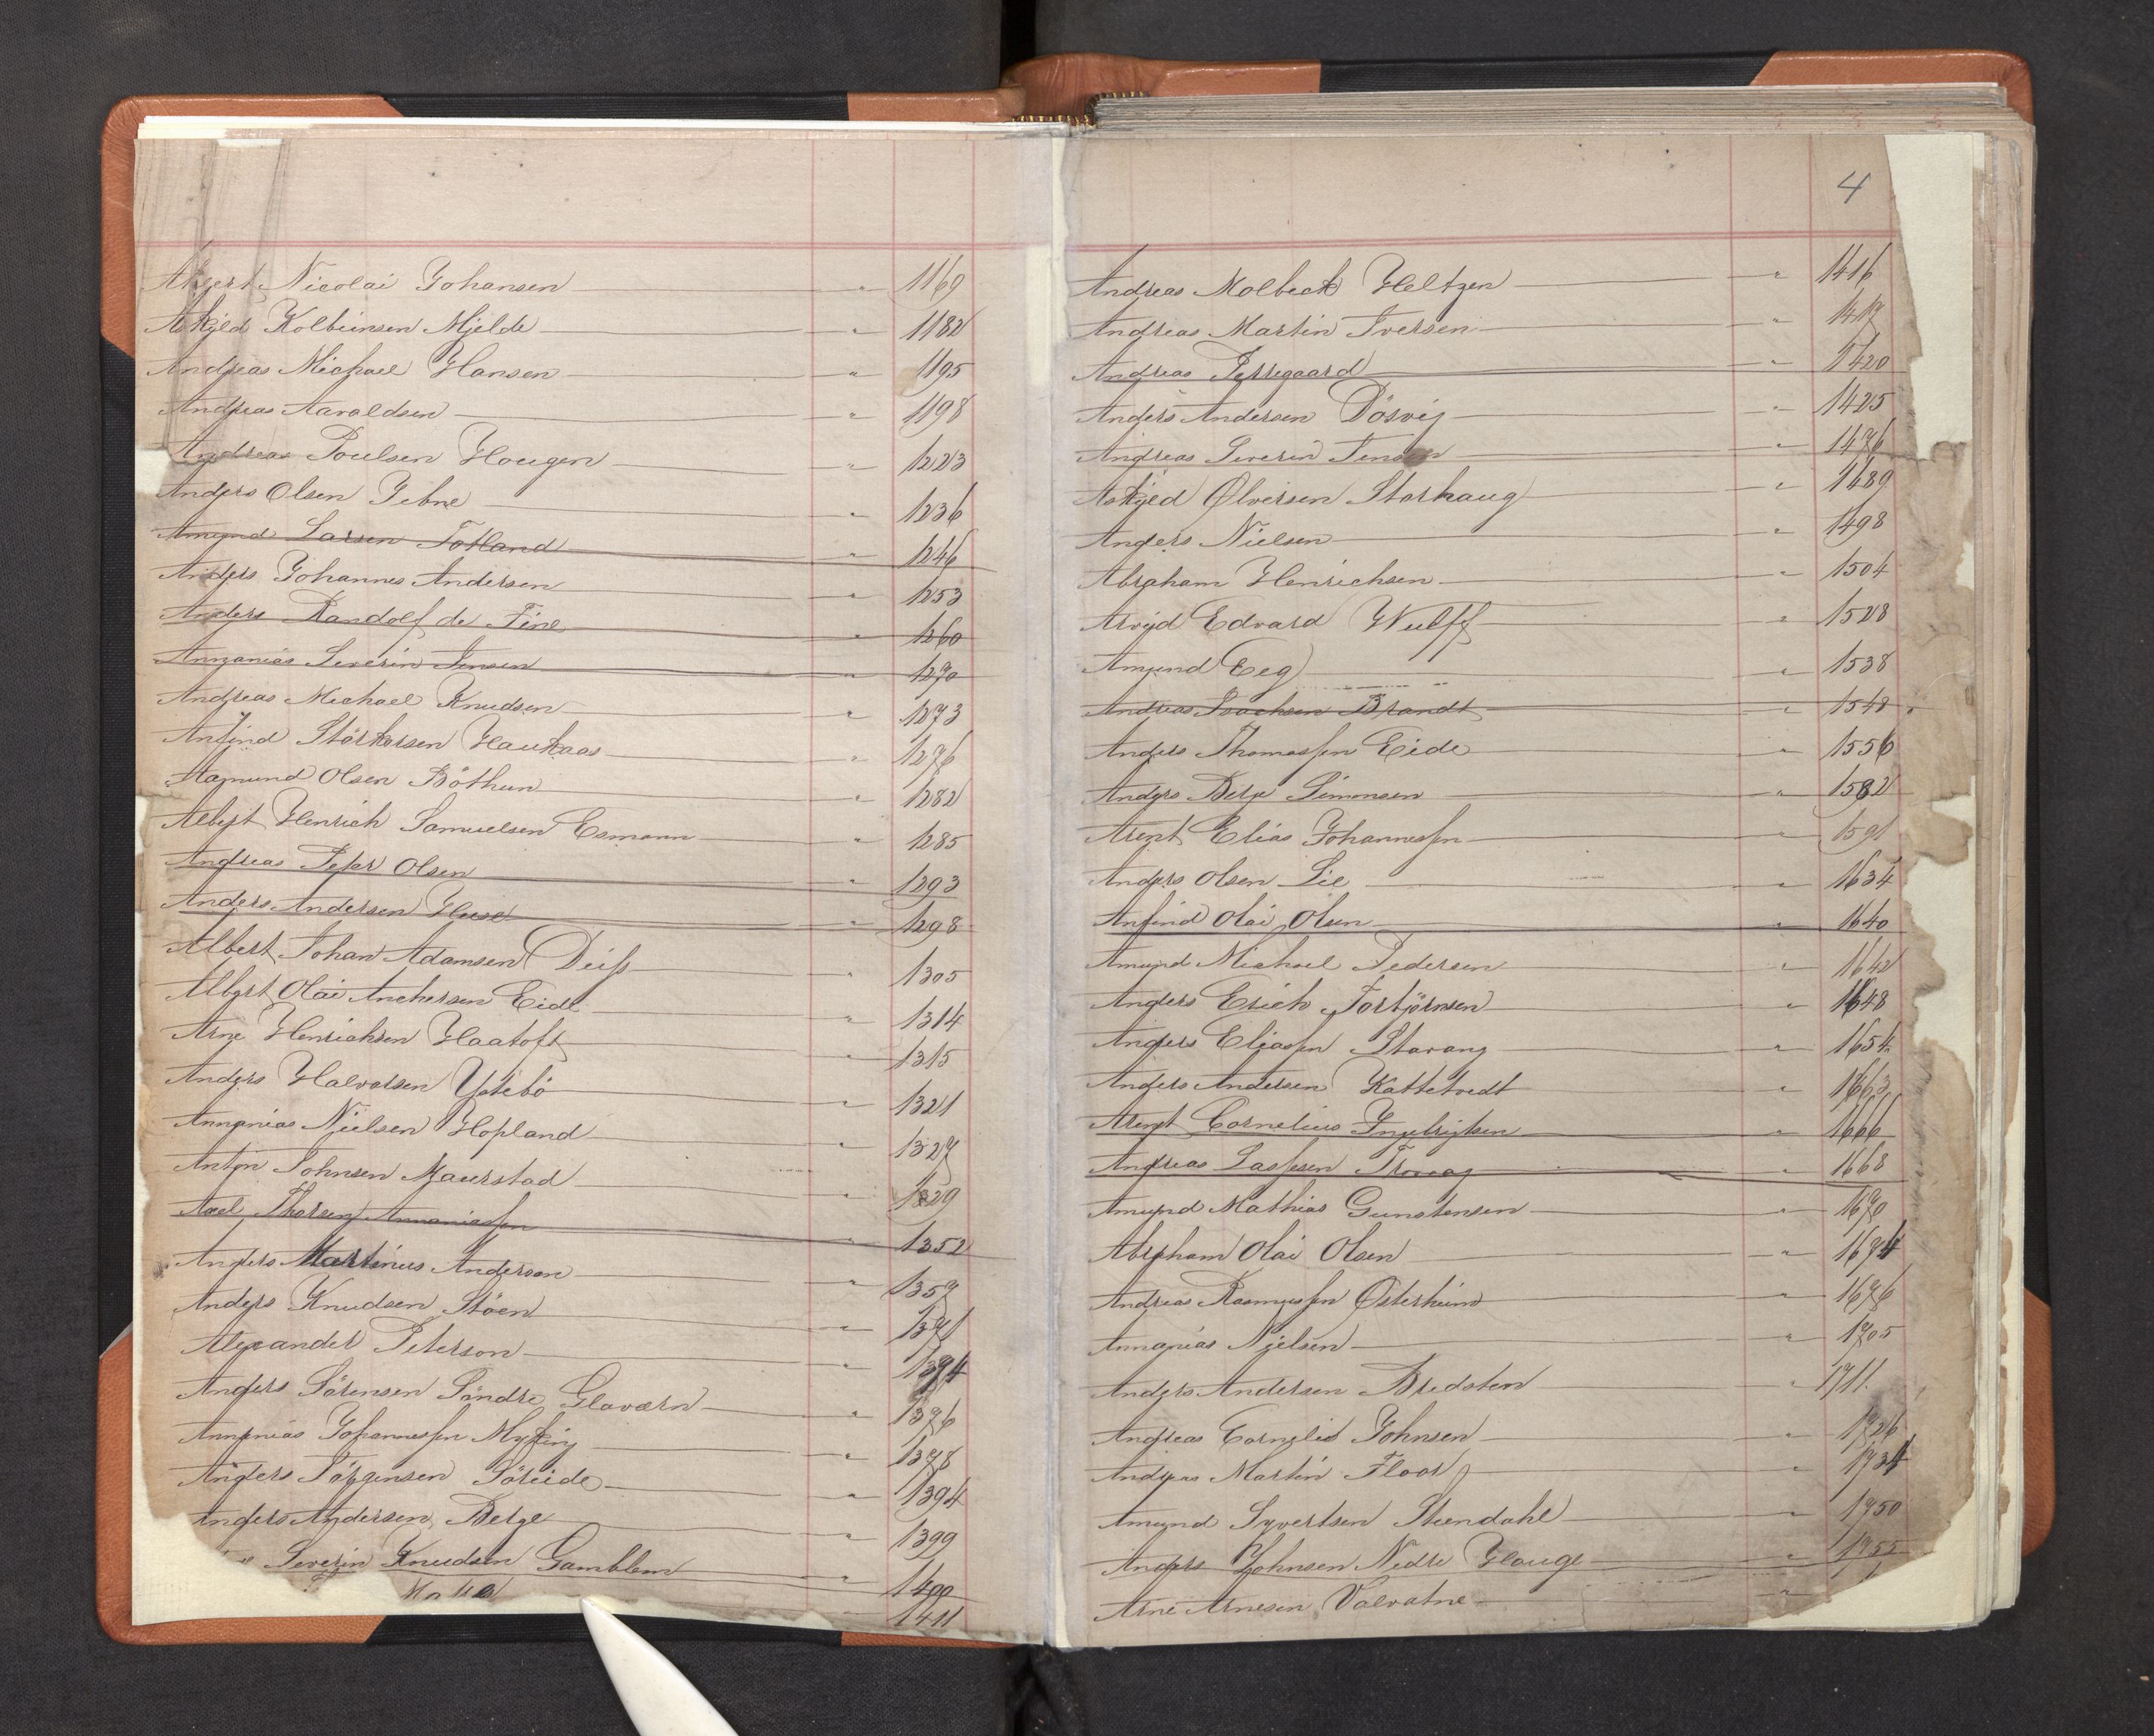 Albert Nicolai Johansen " 1169
Askjeld Kolbeinsen Mjelde " 1182
Andreas Michael Hansen " 1195
Andreas Aaroldsen " 1198
Andreas Poulsen Hougen " 1223
Anders Olsen Jebne " 1236
Amund Larsen Totland " 1246
Anders Johannes Andersen " 1253
Anders Randolf de Fine " 1260
Annanias Severin Jensen " 1270
Andreas Michael Knudsen " 1273
Anfind Störkersen Haukaas " 1276
Aamund Olsen Böthun " 1282
Albert Henrich Samuelsen Esmann " 1285
Andreas Peter Olsen " 1293
Anders Andersen Huse " 1298
Albert Johan Adamsen Deiss " 1305
Albert Olai Anchersen Eide " 1314
Arne Henrichsen Haatoft " 1315
Anders Halvorsen Ystebö " 1321
Annanias Nielsen Hopland " 1327
Anton Johnsen Maurstad " 1329
Axel Thorsen Annaniassen " 1352
Anders Martinus Anderson " 1357
Anders Knudsen Stöen " 1371
Alexander Peterson " 1374
Anders Sörensen Söndre Glaværn " 1376
Annanias Johannessen Myking " 1378
Anders Jörgensen Söreide " 1394
Anders Andersen Berge " 1399
Severin Knudsen Gamblem " 1400
1411
4
Andreas Molbeck Heltzen " 1416
Andreas Martin Iversen " 1417
Andreas Perregaard " 1420
Anders Andersen Dösvig " 1425
Andreas Severin Jensen " 1476
Askjeld Ølversen Storhaug " 1489
Anders Nielsen " 1498
Abraham Henrichsen " 1504
Arvid Edvard Wulff " 1528
Amund Eeg " 1538
Andreas Isachsen Brandt " 1548
Anders Thomassen Eide " 1556
Anders Berge Simonsen " 1582
Arent Elias Johannessen " 1591
Anders Olsen Lie " 1634
Anfind Olai Olsen " 1640
Amund Michael Pedersen " 1642
Anders Erich Torbjörnsen " 1648
Anders Eliassen Stavang " 1654
Anders Andersen Kattetvedt " 1663
Arent Cornelius Ingebrigtsen " 1666
Andreas Lassesen Tromag " 1668
Amund Mathias Gunstensen " 1670
Abraham Olai Olsen " 1674
Andreas Rasmussen Østerheim " 1676
Annanias Nielsen " 1705
Anders Andersen Bredsten " 1711.
Andreas Cornelis Johnsen " 1726
Andreas Martin Floor " 1734
Amund Syvertsen Steendahl " 1750
Anders Johnsen Nedre Hauge " 1755
Arne Arnesen Valvatne "